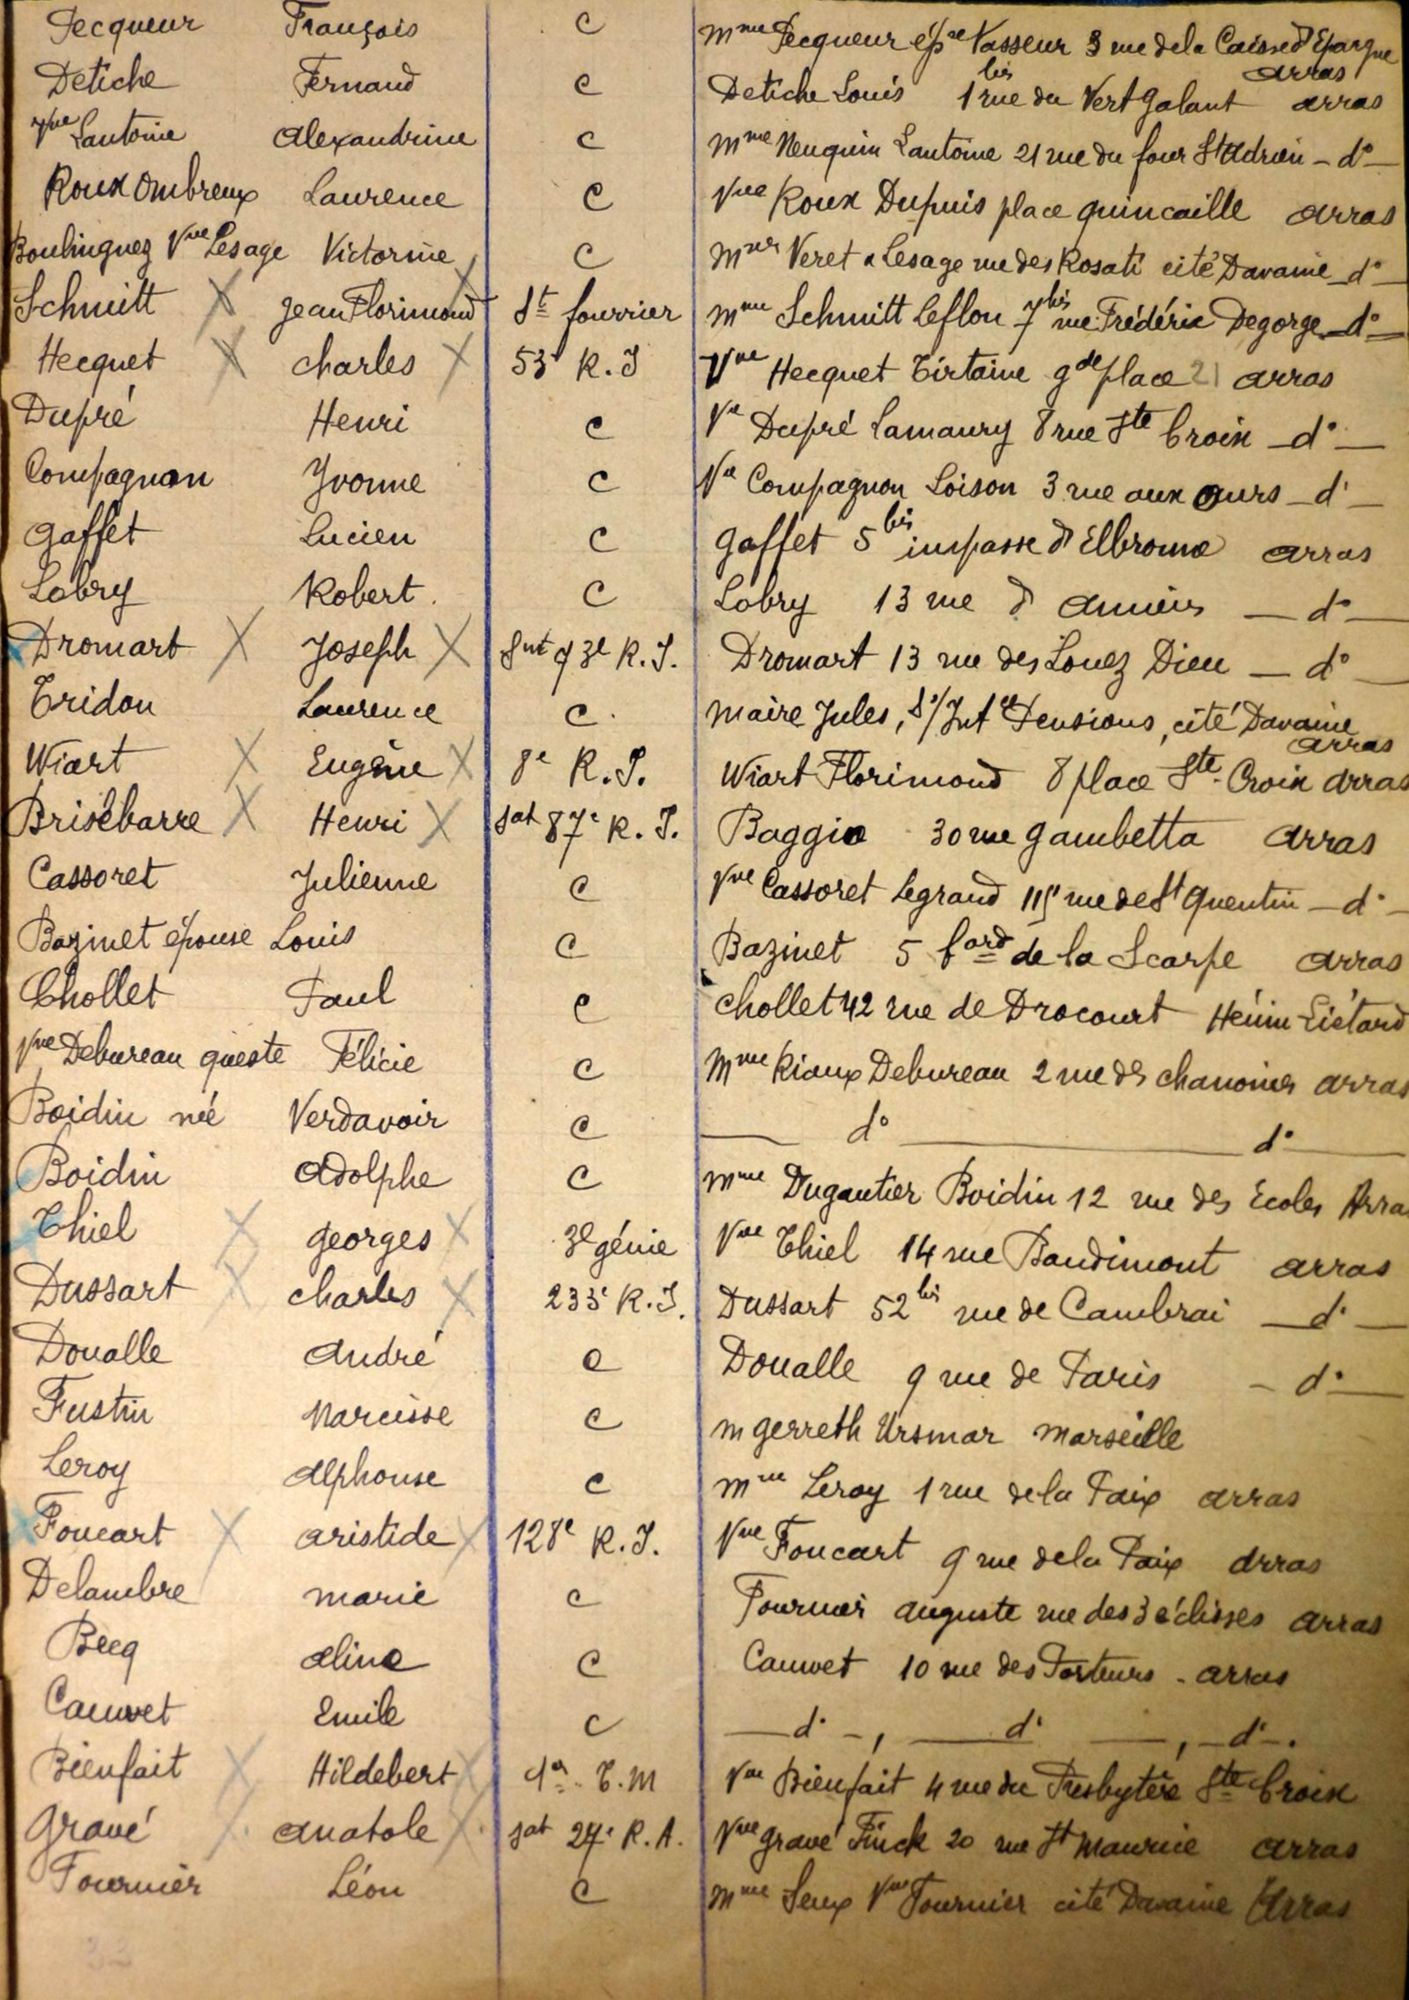 Pecqueur François C Mme Pecqueur épse Vasseur 3 rue de la Caisse d'Epargne arras
Detiche Fernand C Detiche Louis 1 bis rue du Vert galant arras
Vve Lantoine alexandrine C Mme Nenquin Lantoine 21 rue du four St Adrien - d° -
Roux Ombreux Laurence C Vve Roux Dupuis place quincaille arras
Boulinguez Vve Lesage Victorine C Mmes Veret & Lesage rue des Rosati cité Davaine - d° -
Schmitt X jean Florimond X St fourrier Mme Schmitt Leflon 7 bis rue Frédéric Degorge - d° -
Hecquet X charles X 53e R.I Vve Hecquet Tirtaine gde place 21 arras
Dupré Henri C Ve Dupré Lamaury 8 rue Ste Croix - d° -
Compagnon Yvonne C Ve Compagnon Loison 3 rue aux ours - d° -
gaffet Lucien C gaffet 5 bis impasse d'Elbrone arras
Lobry Robert. C Lobry 13 rue d'amiens - d° -
Dromart X Joseph X R.I. Dromart 13 rue des Louez Dieu - d° -
Tridon Laurence C. Maire Jules, Pensions, cité Davaine arras
Wiart X Eugène X 8e R. Wiart Florimond 8 place Ste Croix arras
Brisebarre X Henri X sat 87e R.I. Baggio 30 rue gambetta arras
Cassoret Julienne C Vve Cassoret Legrand 115 rue de St quentin - d° -
Bazinet épouse Louis C Bazinet 5 bard de la Scarpe arras
Chollet Paul C chollet 42 rue de Drocourt Hénin-Liétard
Vve Debureau queste Félicie C Mme Riaux Debureau 2 rue des chanoines arras
Boidin née Verdavoir C d° d°
Boidin adolphe C Mme Dugautier Boidin 12 rue des Ecoles Arras
Thiel X georges X 3e génie Vve Thiel 14 rue Baudimont arras
Dussart X charles X 233e R.I. Dussart 52 bis rue de Cambrai - d° -
Doualle andré C Doualle 9 rue de Paris - d° -
Fustin Narcisse C M gerreth Ursmar Marseille
Leroy alphonse C Mme Leroy 1 rue de la Paix arras
Foucart X aristide X 128e R.I. Vve Foucart 9 rue de la Paix arras
Delambre marie C Fournier auguste rue des 3 éclisses arras
Becq aline C Cauwet 10 rue des Porteurs - arras
Cauwet Emile C - d° -, - d° -, - d° -.
Bienfait X Hildebert X T.M Vve Bienfait 4 rue du Presbytère Ste Croix
gravé X anatole X sat 27e R.A. Vve gravé Finck 20 rue St Maurice arras
Fournier Léon C Mme Seux Vve Fournier cité Davaine Arras
33